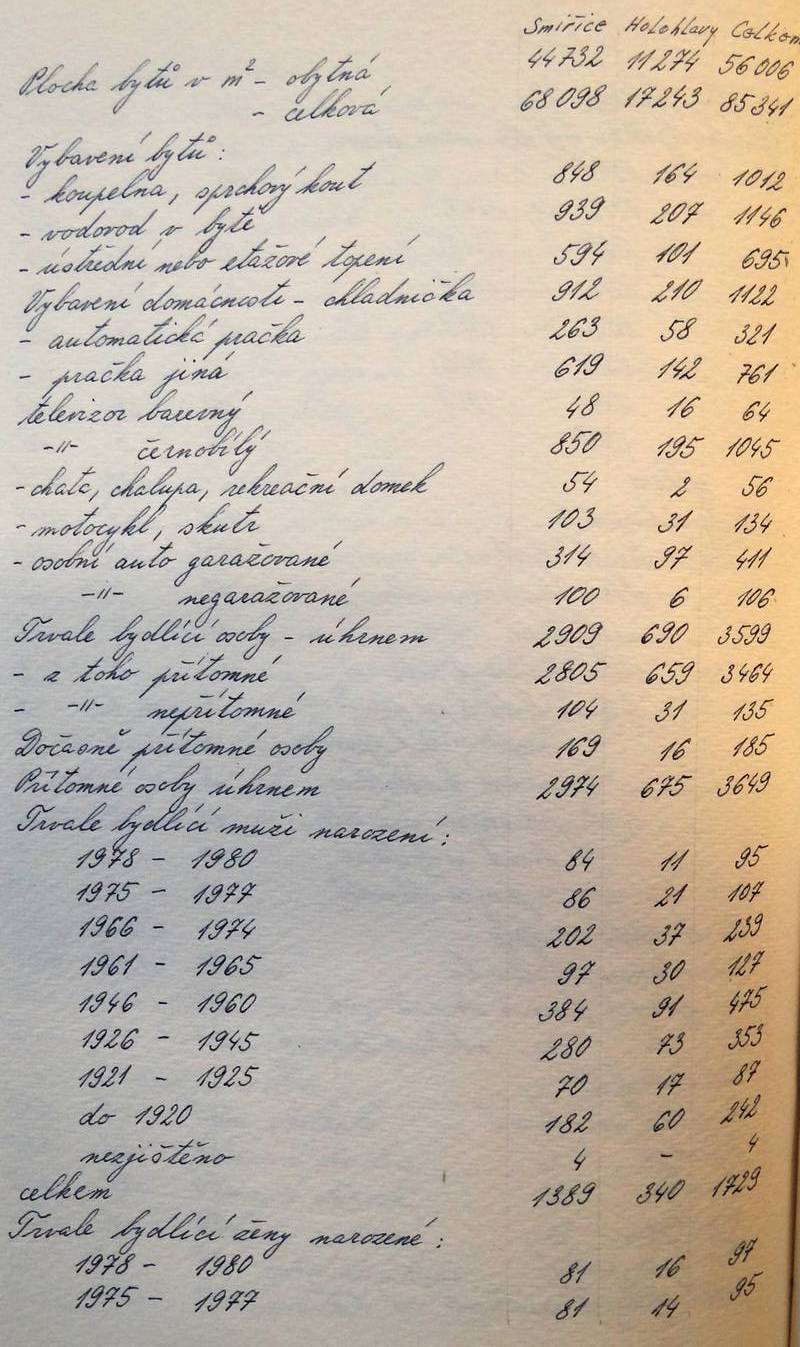 Smiřice Holohlavy Celkem
Plocha bytů v m² - obytná 44732 11274 56006
- celková 68098 17243 85341
Vybavení bytů:
- koupelna, sprchový kout 848 164 1012
- vodovod v bytě 939 207 1146
- ústřední nebo etážové topení 594 101 695
Vybavení domácnosti - chladnička 912 210 1122
- automatická pračka 263 58 321
- pračka jiná 619 142 761
televizor barevný 48 16 64
-"- černobílý 850 195 1045
- chata, chalupa, rekreační domek 54 2 56
- motocykl, skútr 103 31 134
- osobní auto garážované 314 97 411
-"- negarážované 100 6 106
Trvale bydlící osoby - úhrnem 2909 690 3599
- z toho přítomné 2805 659 3464
- -"- nepřítomné 104 31 135
Dočasně přítomné osoby 169 16 185
Přítomné osoby úhrnem 2974 675 3649
Trvale bydlící muži narození:
1978 - 1980 84 11 95
1975 - 1977 86 21 107
1966 - 1974 202 37 239
1961 - 1965 97 30 127
1946 - 1960 384 91 475
1926 - 1945 280 73 353
1921 - 1925 70 17 87
do 1920 182 60 242
nezjištěno 4 - 4
celkem 1389 340 1729
Trvale bydlící ženy narozené:
1978 - 1980 81 16 97
1975 - 1977 81 14 95